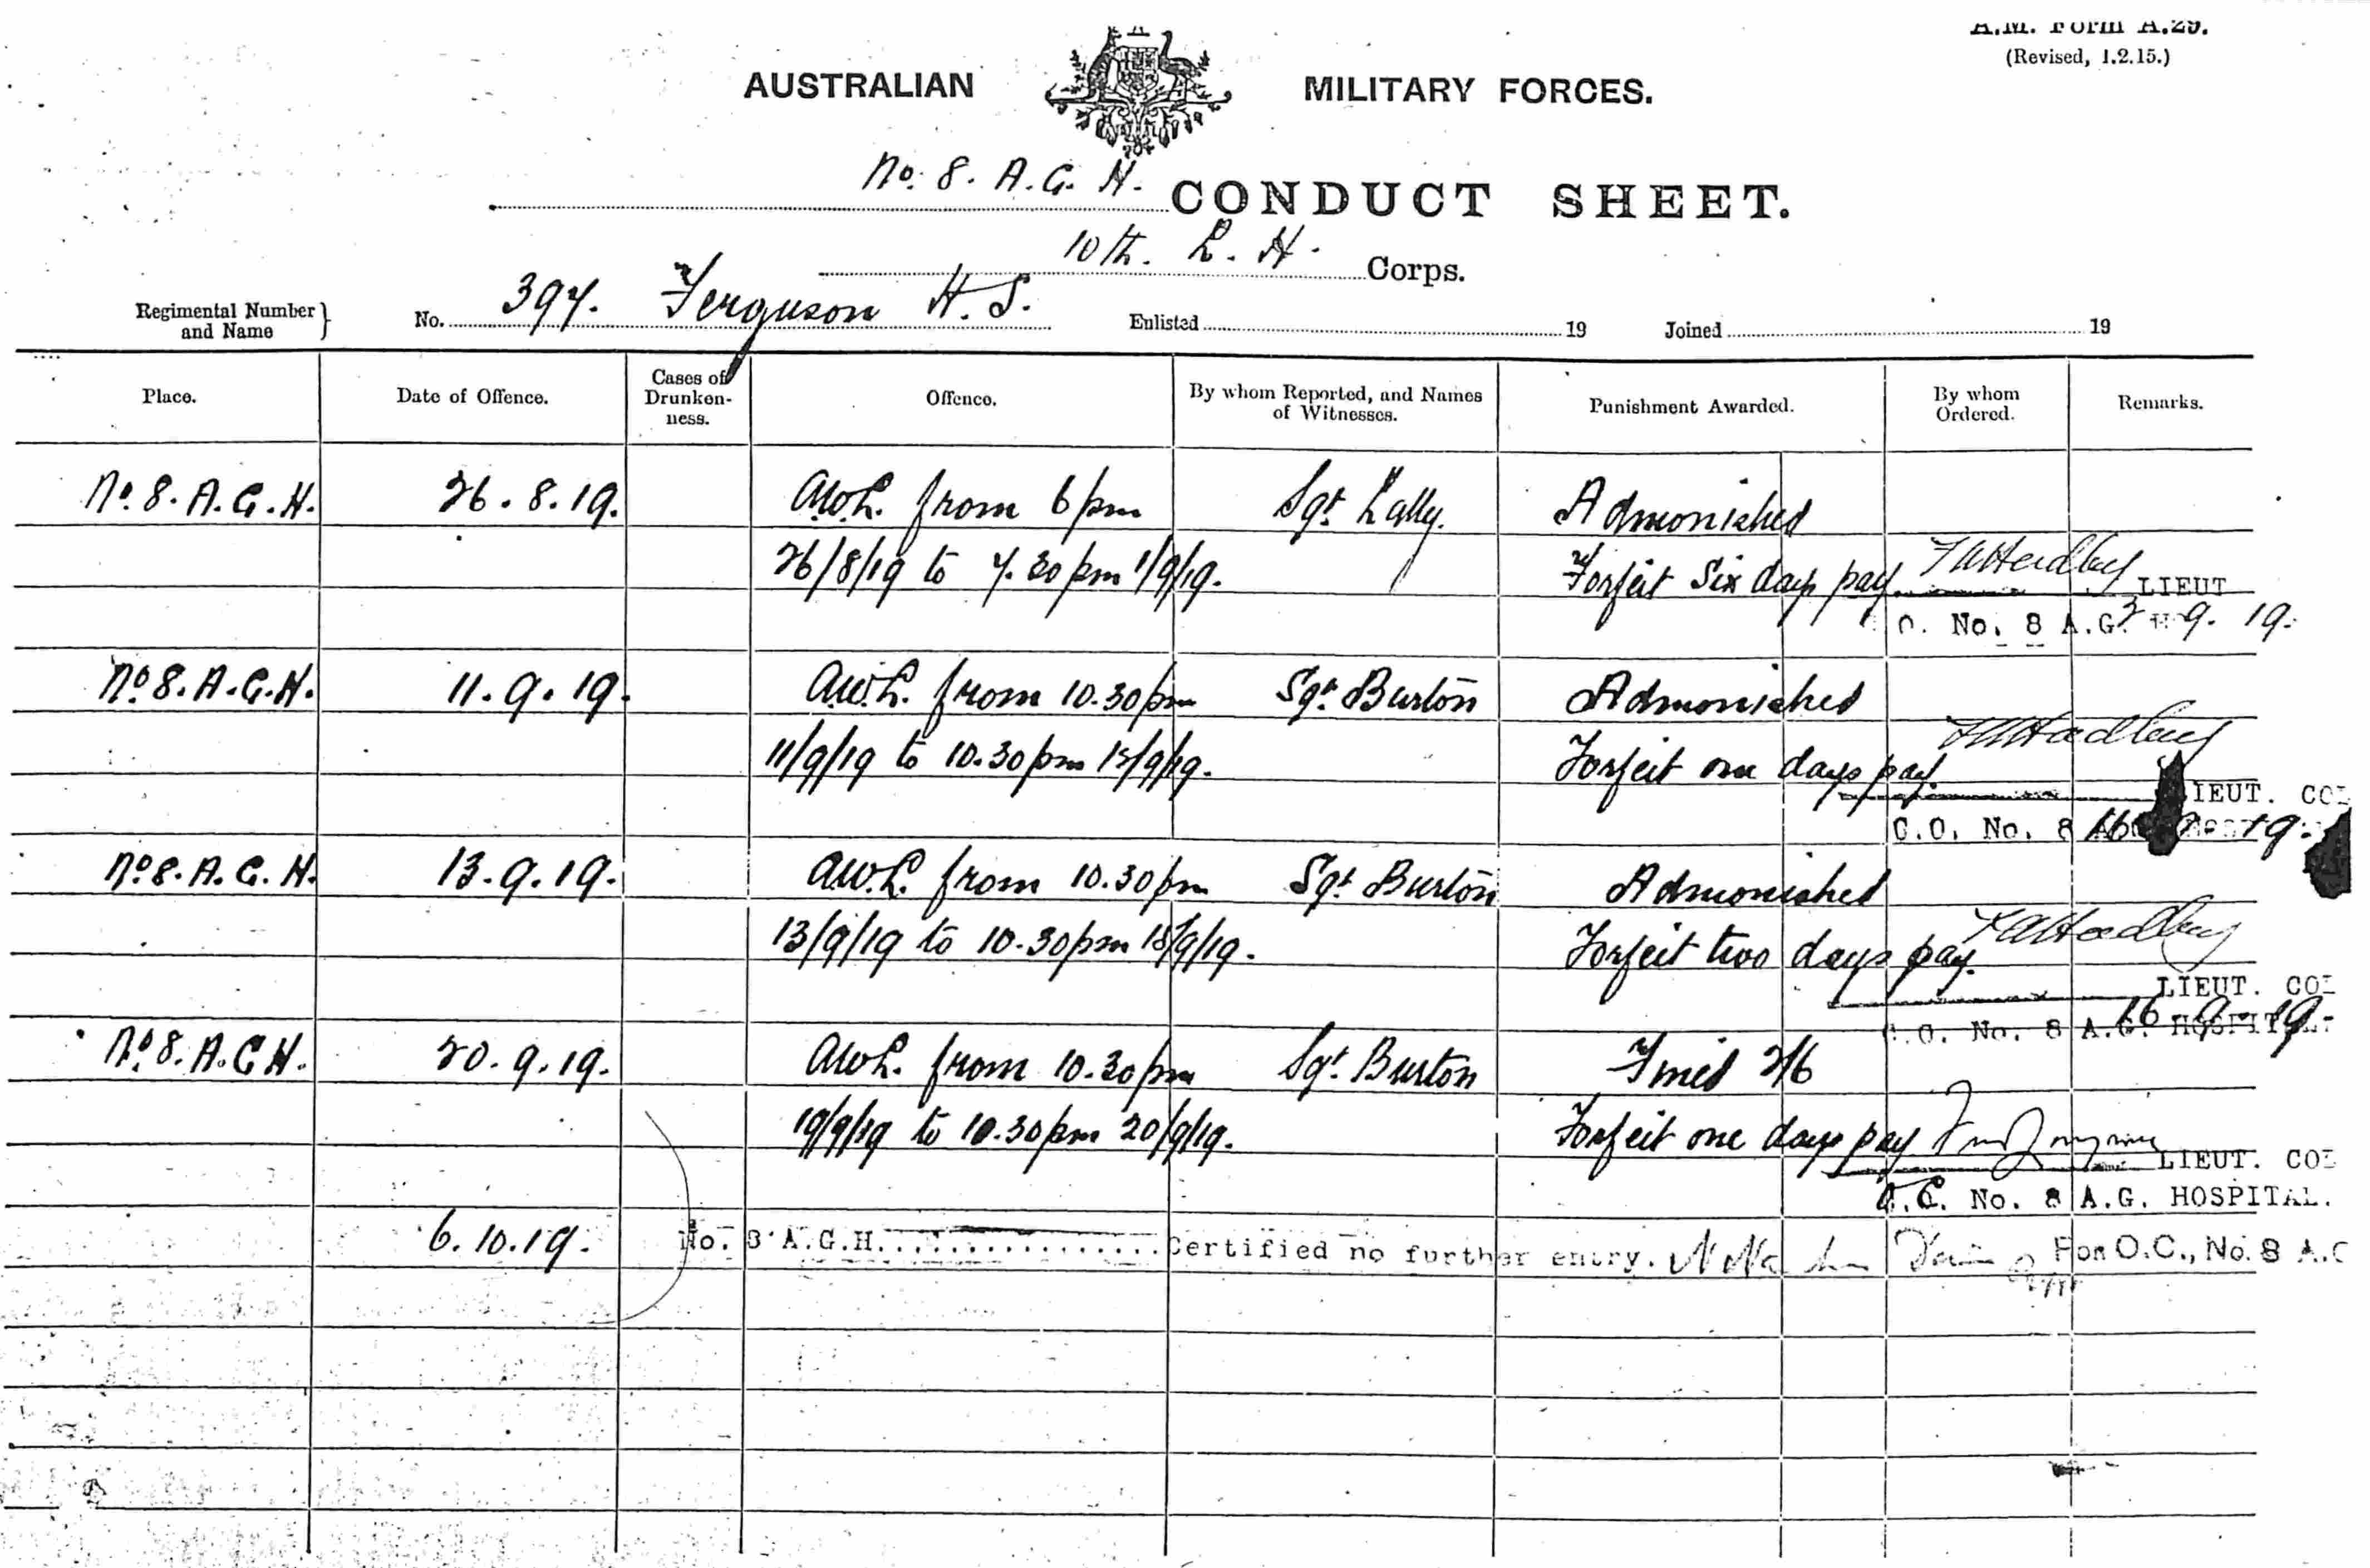 A.M. Form A.29.
(Revised, 1.2.15.)
AUSTRALIAN MILITARY FORCES.
No. 8. A. G. H. CONDUCT SHEET.
10th. L. H. Corps.
Regimental Number and Name } No. 397. Ferguson H. S. Enlisted 19 Joined 19
Place. Date of Offence. Cases of Drunken-ness. Offence. By whom Reported, and Names of Witnesses. Punishment Awarded. By whom Ordered. Remarks.
No. 8. A. G. H. 26. 8. 19. A.W.L. from 6 pm Sgt. Lally. Admonished
26/8/19 to 7.30 pm 1/9/19. Forfeit Six days pay. LIEUT
O. No. 8 A.G. H 9. 19.
No. 8. A. G. H. 11. 9. 19. A.W.L. from 10.30 pm Sgt. Burton Admonished
11/9/19 to 10.30 pm 12/9/19. Forfeit one days pay.
LIEUT. COL
C.O. No. 8 16 9 19.
No. 8. A. G. H. 13. 9. 19. A.W.L. from 10.30 pm Sgt. Burton Admonished
13/9/19 to 10.30 pm 15/9/19. Forfeit two days pay.
LIEUT. COL
16 9 19.
C.O. No. 8 A.G. HOSPITAL.
No. 8. A. G. H. 20. 9. 19. A.W.L. from 10.30 pm Sgt. Burton Fined 2/6
19/9/19 to 10.30 pm 20/9/19. Forfeit one days pay
LIEUT. COL
O.C. No. 8 A.G. HOSPITAL.
6. 10. 19. No. 8 A.G.H. Certified no further entry. For O.C., No. 8 A.G